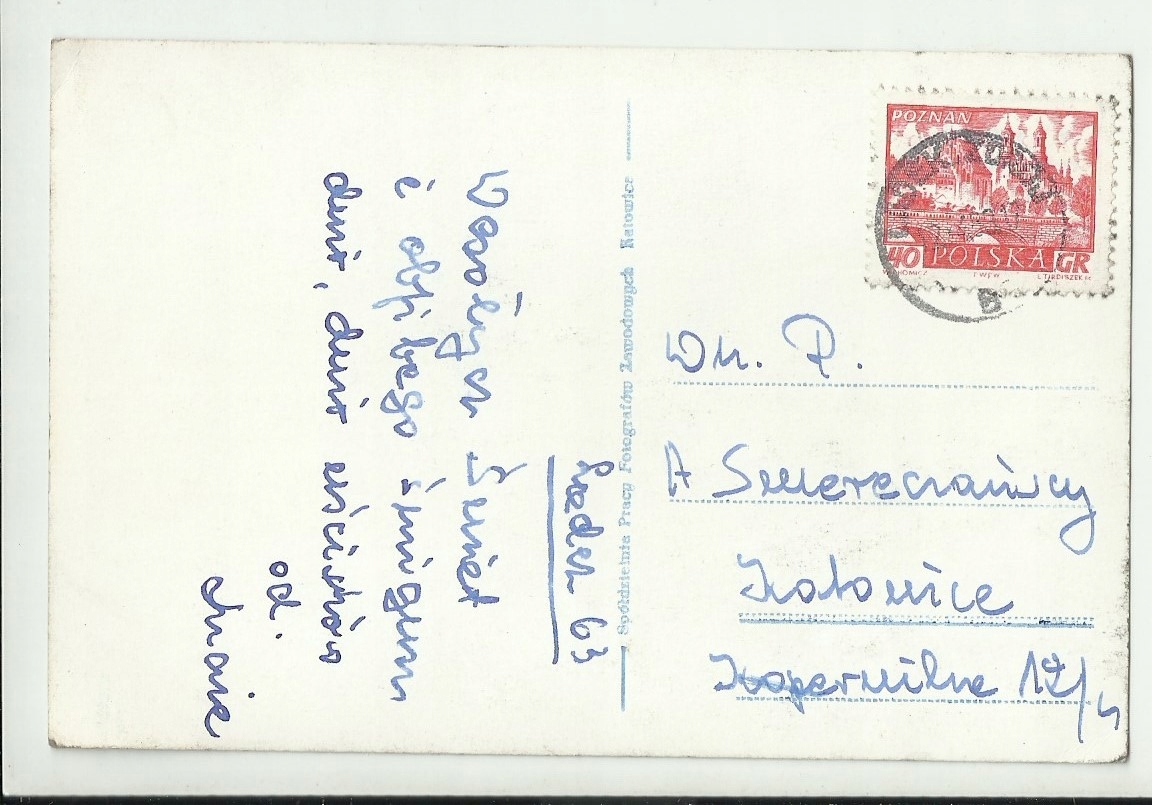 Grudzień 63
Wesołych Świąt
i obfitego śniegiem
dużo, dużo uścisków
od.
Spółdzielnia Pracy Fotografów Zawodowych Katowice
POZNAŃ
40 POLSKA GR
Wn. P.
A
Katowice
Kopernika 12/4